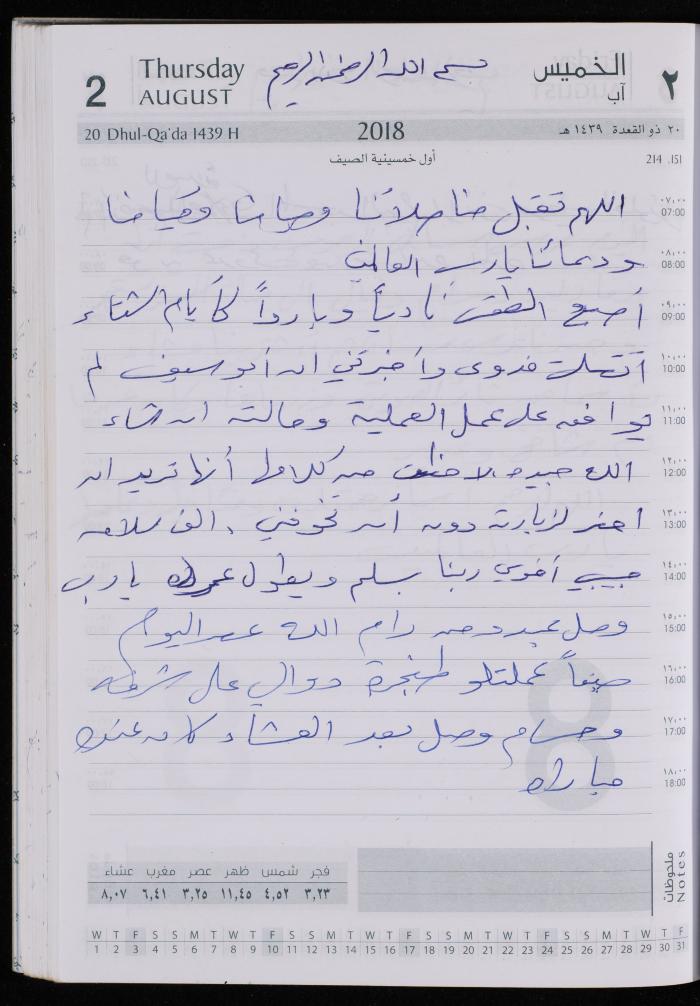 بسم الله الرحمن الرحيم
2 Thursday AUGUST الخميس آب ٢
20 Dhul-Qa'da 1439 H 2018 ٢٠ ذو القعدة ١٤٣٩ هـ
أول خمسينية الصيف 214 .151
اللهم تقبل منا صلاتنا وصيامنا وقيامنا
٠٧,٠٠ 07:00
ودعائنا يارب العالمين
٠٨,٠٠ 08:00
أصبح الطقس نادياً وبارداً كأيام الشتاء
٠٩,٠٠ 09:00
اتصلت فدوى وأخبرتني ان أبو سيف لم
١٠,٠٠ 10:00
يوافق على عمل العملية وحالته ان شاء
١١,٠٠ 11:00
الله جيده لاحظت من كلامها أنها تريد ان
١٢,٠٠ 12:00
احضر لزيارته دون أن تخوفني . الف سلامه
١٣,٠٠ 13:00
حبيبي أخوي ربنا يسلم ويطول عمرك يارب
١٤,٠٠ 14:00
وصل عبد من رام الله عصر اليوم
١٥,٠٠ 15:00
عملتلو طنجرة دوالي على شرفه
١٦,٠٠ 16:00
وحسام وصل بعد العشاء كان عنده
١٧,٠٠ 17:00
مباراه
١٨,٠٠ 18:00
ملاحظات Notes
فجر شمس ظهر عصر مغرب عشاء
٣,٢٣ ٤,٥٢ ١١,٤٥ ٣,٢٥ ٦,٤١ ٨,٠٧
W T F S S M T W T F S S M T W T F S S M T W T F S S M T W T F
1 2 3 4 5 6 7 8 9 10 11 12 13 14 15 16 17 18 19 20 21 22 23 24 25 26 27 28 29 30 31